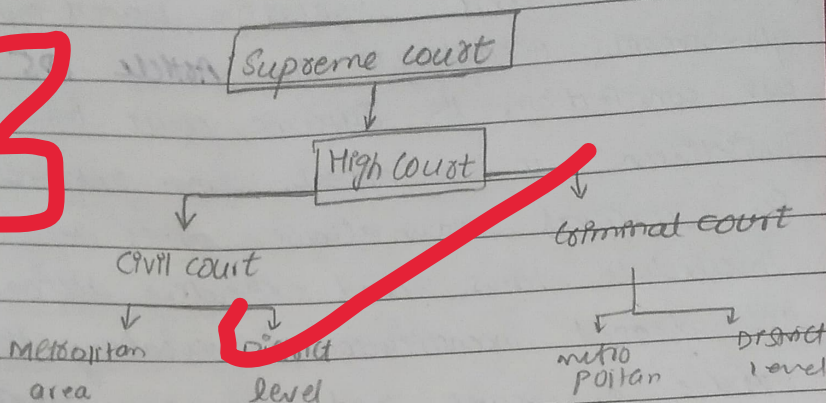 Supreme court
High court
Civil court
Criminal court
Metropitan
area
District
level
metro
politan
District
level